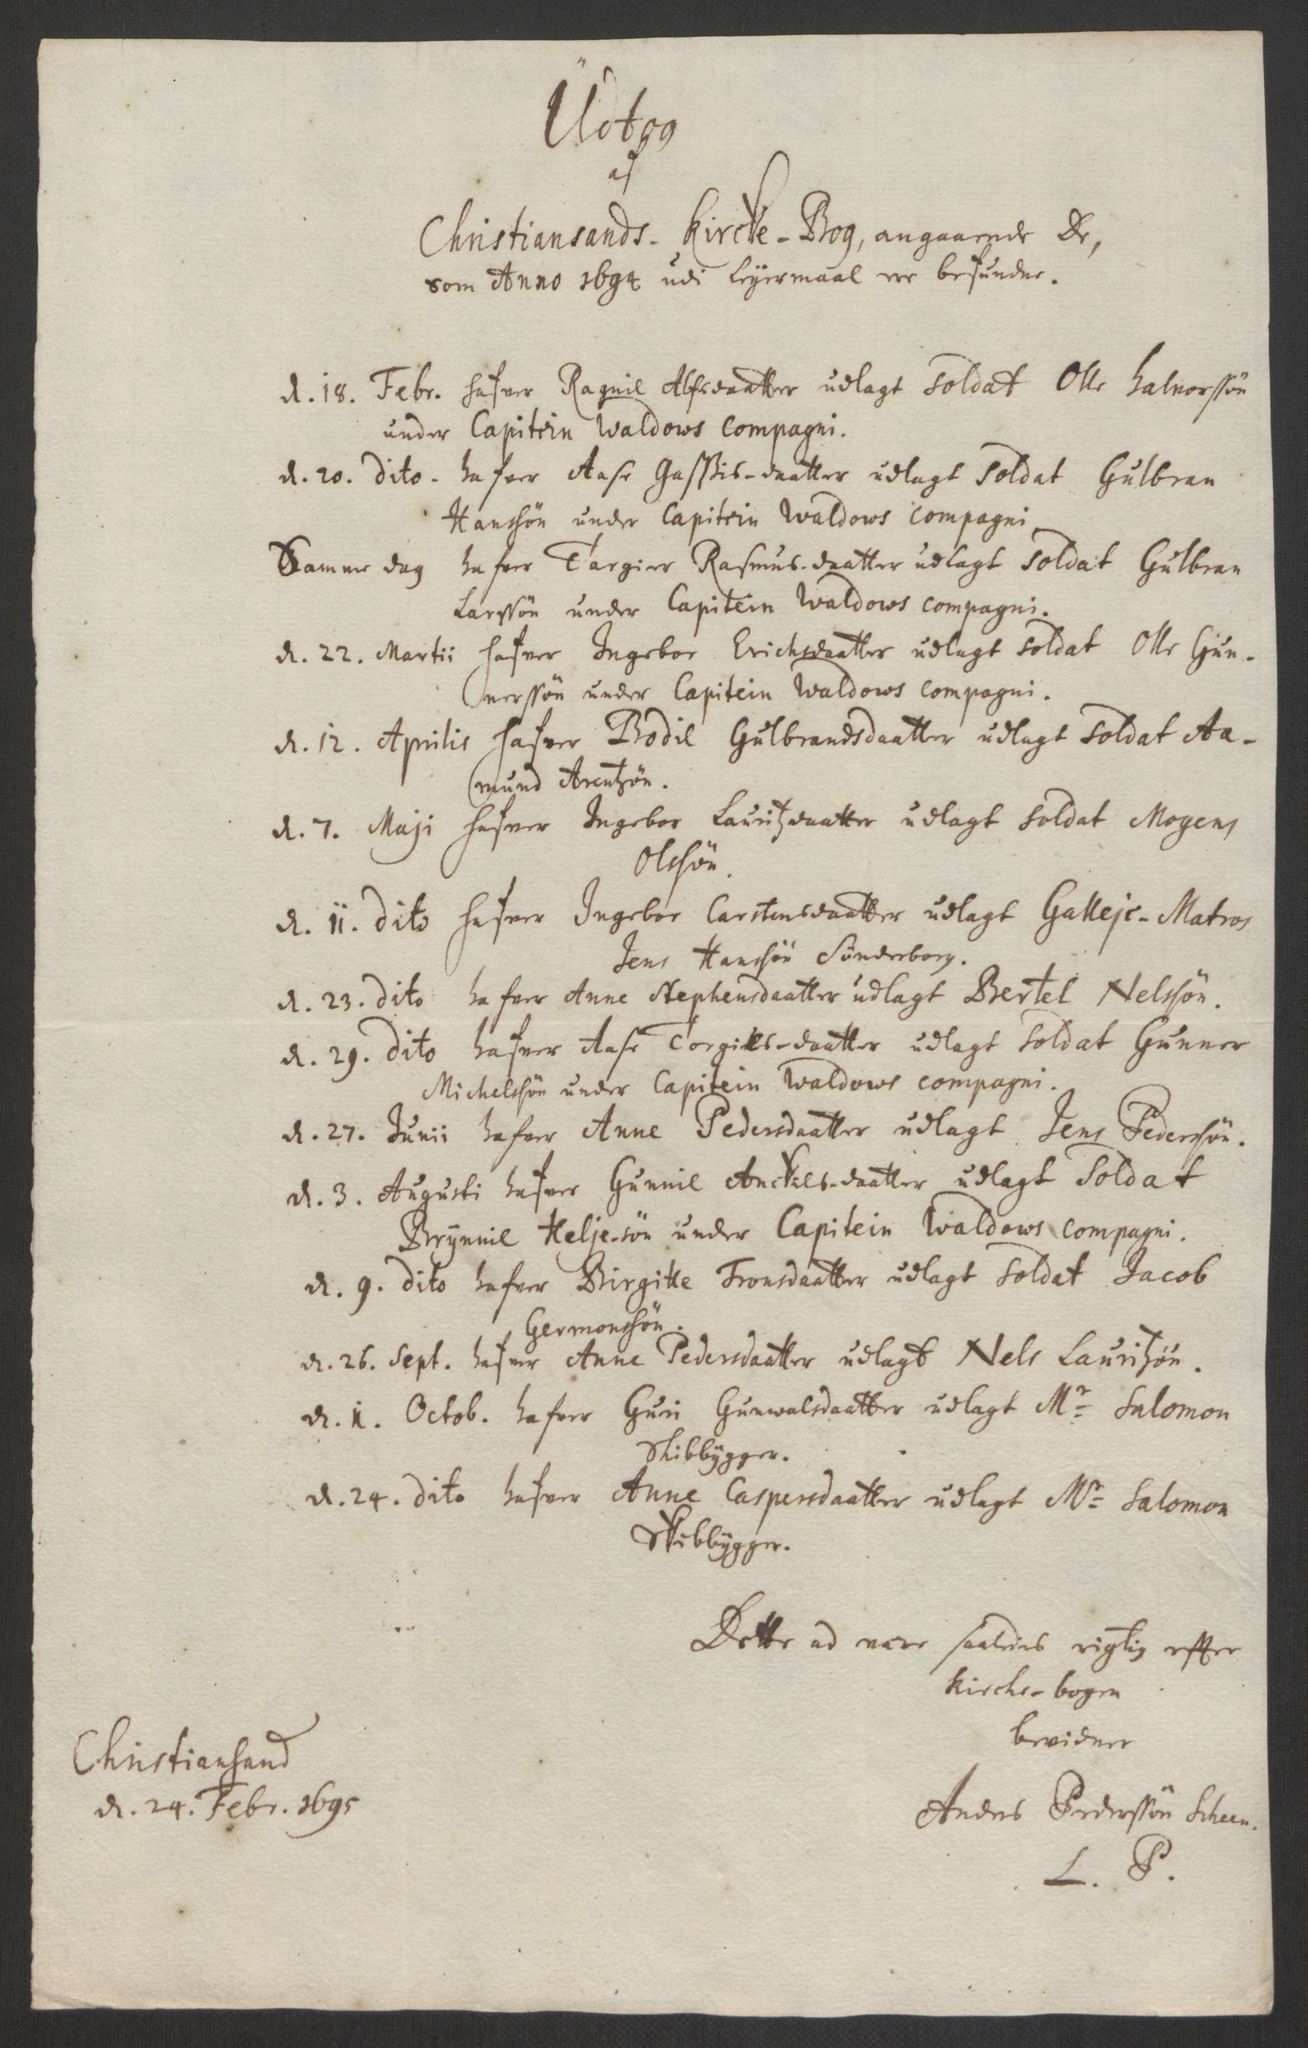 Udtog
af
Christiansands - Kircke - Bog, angaaende De,
som Anno 1694 udi Leyermaal ere befundne.
d. 18. Febr. hafver Ragnil Alfsdaatter udlagt Soldat Olle Halvorssön
under Capitein Waldows Compagni.
d. 20. dito - hafver Aase Gasskis-daatter udlagt Soldat Gulbran
Hanssön under Capitein Waldows Compagni
Samme dag hafver Targier Rasmus-daatter udlagt Soldat Gulbran
Larssön under Capitein Waldows compagni.
d. 22. Martii hafver Ingebor Erichsdaatter udlagt Soldat Olle Gun-
nerssön under Capitein Waldows compagni.
d. 12. Aprilis hafver Bodil Gulbrandsdaatter udlagt Soldat Aa-
mund Arentzön.
d. 7. Maji hafver Ingebor Lauritzdaatter udlagt Soldat Mogens
Olssön.
d. 11. dito hafver Ingebor Carstensdaatter udlagt Galleje-Matros
Jens Hanssön Sönderborg.
d. 23. dito hafver Anne Stephensdaatter udlagt Bertel Nelssön.
d. 29. dito hafver Aase Torgils-daatter udlagt Soldat Gunner
Michelssön under Capitein Waldows compagni.
d. 27. Junii hafver Anne Pedersdaatter udlagt Jens Pederssön.
d. 3. Augusti hafver Gunnil Anckels-daatter udlagt Soldat
Brynnil Helje-sön under Capitein Waldows compagni.
d. 9. dito hafver Birgitte Tronsdaatter udlagt Soldat Jacob
Germonssön.
d. 26. Sept. hafver Anne Pedersdaatter udlagt Nels Lauritzön.
d. 11. Octob. hafver Guri Gunwalsdaatter udlagt Mr Salomon
Skibbygger.
d. 24. dito hafver Anne Caspersdaatter udlagt Mr Salomon
Skibbygger.
Dette ad være saaledes rigtig effter
Kircke-bogen
bevidner
Christiansand
d. 24. Febr. 1695
Anders Pederssön Scheen.
L. P.